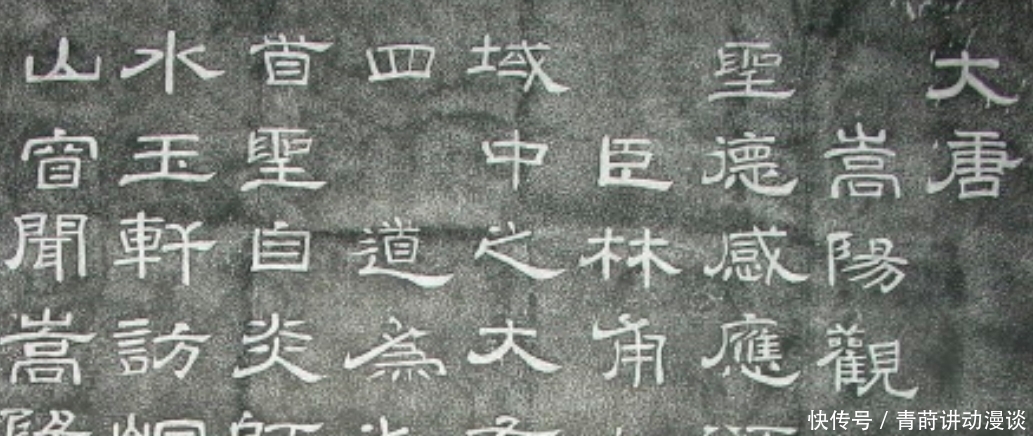 大唐
嵩陽觀
聖德感應
臣林甫
域中之大
四 道為
首聖自炎
水玉軒訪
山窅聞嵩
快传号 / 青莳讲动漫谈